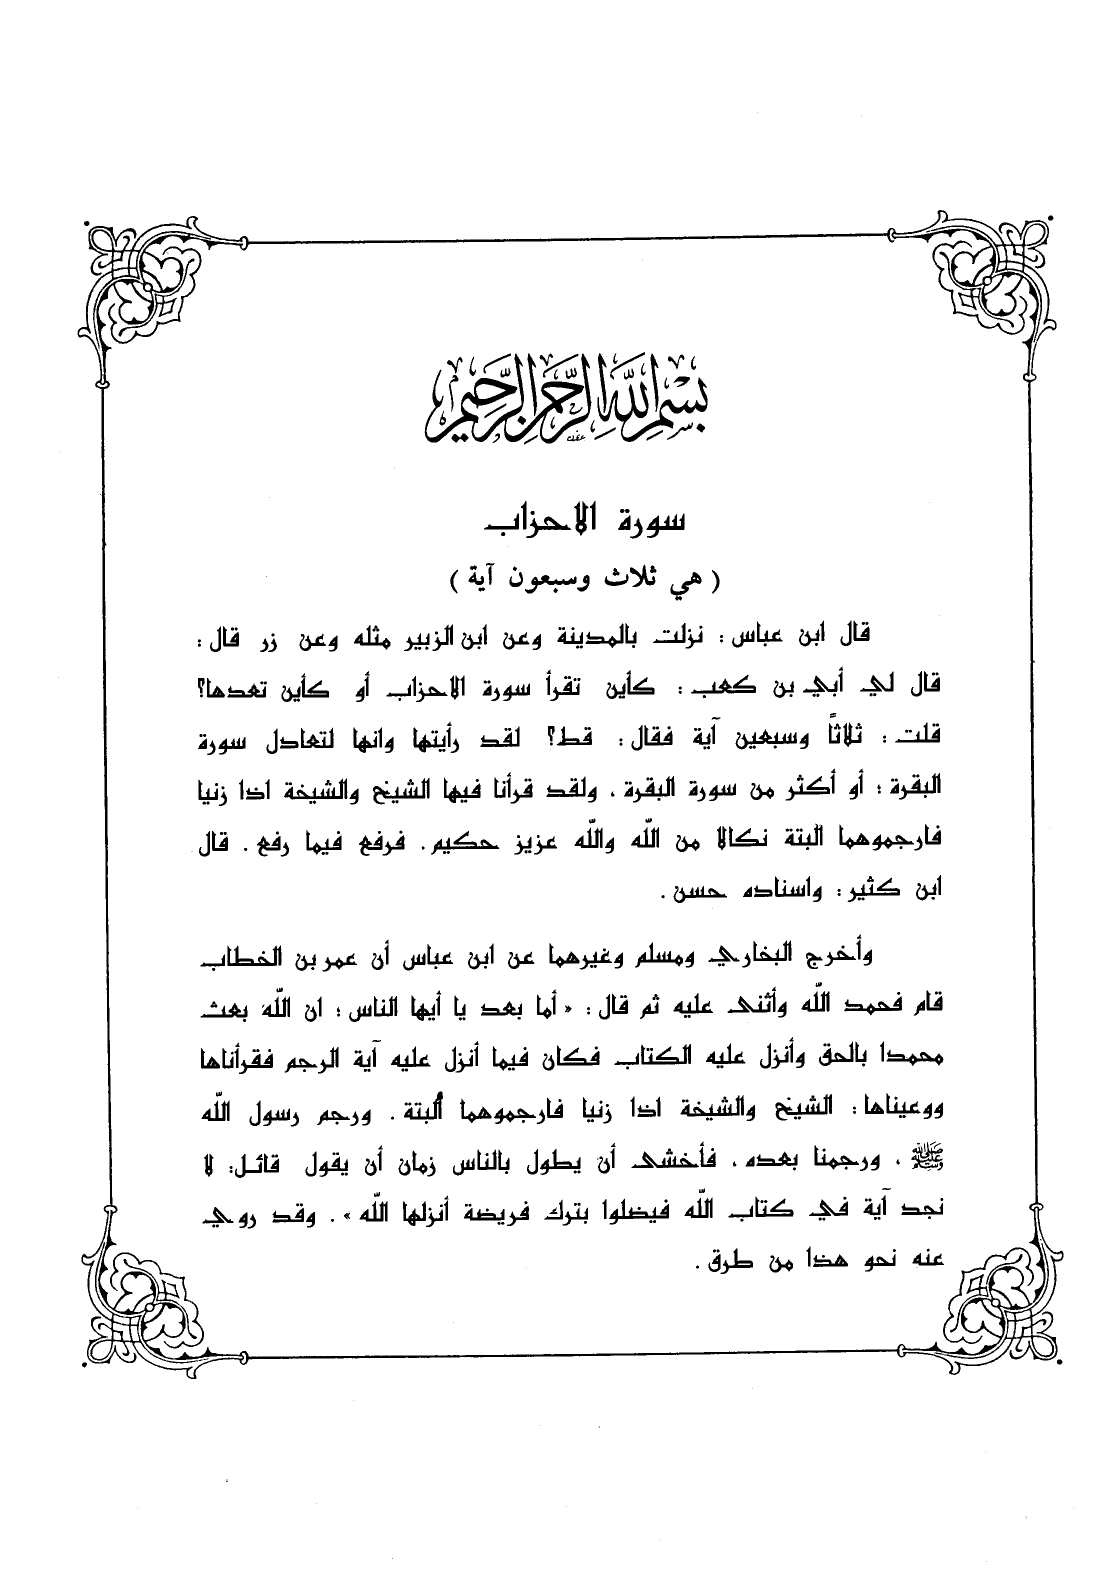 بسم الله الرحمن الرحيم
سورة الاحزاب
( هي ثلاث وسبعون آية )
قال ابن عباس : نزلت بالمدينة وعن ابن الزبير مثله وعن زر قال :
قال لي أبي بن كعب : كأين تقرأ سورة الاحزاب أو كأين تعدها؟
قلت : ثلاثاً وسبعين آية فقال : قط؟ لقد رأيتها وانها لتعادل سورة
البقرة ؛ أو أكثر من سورة البقرة ، ولقد قرأنا فيها الشيخ والشيخة اذا زنيا
فارجموهما البتة نكالا من الله والله عزيز حكيم . فرفع فيما رفع . قال
ابن كثير : واسناده حسن .
وأخرج البخاري ومسلم وغيرهما عن ابن عباس أن عمر بن الخطاب
قام فحمد الله وأثنى عليه ثم قال : « أما بعد يا أيها الناس ؛ ان الله بعث
محمدا بالحق وأنزل عليه الكتاب فكان فيما أنزل عليه آية الرجم فقرأناها
ووعيناها : الشيخ والشيخة اذا زنيا فارجموهما ألبتة . ورجم رسول الله
ﷺ ، ورجمنا بعده ، فأخشى أن يطول بالناس زمان أن يقول قائل : لا
نجد آية في كتاب الله فيضلوا بترك فريضة أنزلها الله » . وقد روي
عنه نحو هذا من طرق .